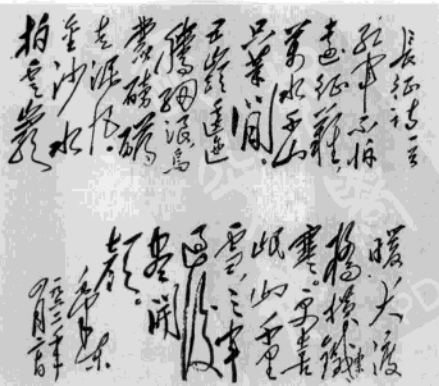 長征詩一首
紅軍不怕
遠征難
萬水千山
只等閒
五嶺逶迤
騰細浪烏
蒙磅礴
走泥丸
金沙水
拍雲崖
暖大渡
橋橫鐵索
寒更喜
岷山千里
雪三軍
過後
盡開
顏
毛澤東
一九六二年